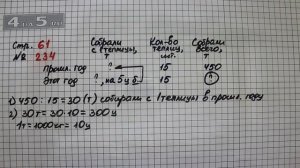 4 на 5.ru
Стр. 61
№ 234
Собрали с 1 теплицы, т
Кол-во теплиц, шт.
Собрали всего, т
Прошл. год 15 450
Этот год ?, на 5 ц б. 15 ?
1) 450 : 15 = 30 (т) собирали с 1 теплицы в прошл. году
2) 30 т = 30 · 10 = 300 ц
1 т = 1000 кг = 10 ц